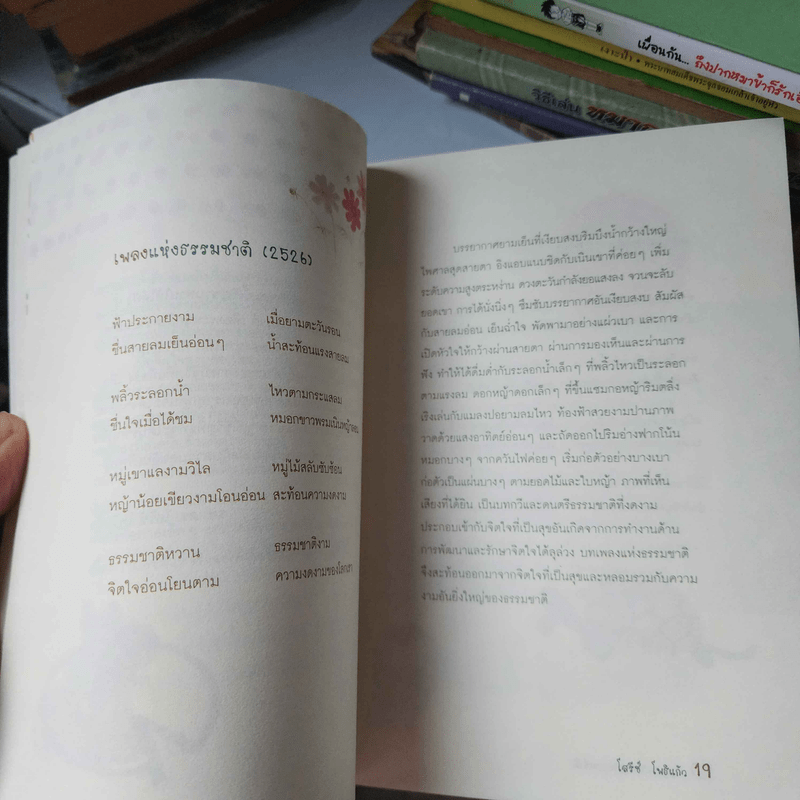 เพื่อนกัน... ถึงปากหมาข้าก็รัก
เจาะเป้า • พระบาทสมเด็จพระจุลจอมเกล้าเจ้าอยู่หัว
เพลงแห่งธรรมชาติ (2526)
ฟ้าประกายงาม เมื่อยามตะวันรอน
ชื่นสายลมเย็นอ่อนๆ น้ำสะท้อนแรงสายลม
พลิ้วระลอกน้ำ ไหวตามกระแสลม
ชื่นใจเมื่อได้ชม หมอกขาวพรมเนิน
หมู่เขาแลงามวิไล หมู่ไม้สลับซับซ้อน
หญ้าน้อยเขียวงามโอนอ่อน สะท้อนความงดงาม
ธรรมชาติหวาน ธรรมชาติงาม
จิตใจอ่อนโยนตาม ความงดงามของโลกเรา
บรรยากาศยามเย็นที่เงียบสงบริมบึงน้ำกว้างใหญ่
ไพศาลสุดสายตา อิงแอบแนบชิดกับเนินเขาที่ค่อยๆ เพิ่ม
ระดับความสูงตระหง่าน ดวงตะวันกำลังยอแสงลง จวนจะลับ
ยอดเขา การได้นั่งนิ่งๆ ซึมซับบรรยากาศอันเงียบสงบ สัมผัส
กับสายลมอ่อน เย็นฉ่ำใจ พัดพามาอย่างแผ่วเบา และการ
เปิดหัวใจให้กว้างผ่านสายตา ผ่านการมองเห็นและผ่านการ
ฟัง ทำให้ได้ดื่มด่ำกับระลอกน้ำเล็กๆ ที่พลิ้วไหวเป็นระลอก
ตามแรงลม ดอกหญ้าดอกเล็กๆ ที่ขึ้นแซมกอหญ้าริมตลิ่ง
เริงเล่นกับแมลงปอยามลมไหว ท้องฟ้าสวยงามปานภาพ
วาดด้วยแสงอาทิตย์อ่อนๆ และถัดออกไปริมอ่างฟากโน้น
หมอกบางๆ จากควันไฟค่อยๆ เริ่มก่อตัวอย่างบางเบา
ก่อตัวเป็นแผ่นบางๆ ตามยอดไม้และใบหญ้า ภาพที่เห็น
เสียงที่ได้ยิน เป็นบทกวีและดนตรีธรรมชาติที่งดงาม
ประกอบเข้ากับจิตใจที่เป็นสุขอันเกิดจากการทำงานด้าน
การพัฒนาและรักษาจิตใจได้ลุล่วง บทเพลงแห่งธรรมชาติ
จึงสะท้อนออกมาจากจิตใจที่เป็นสุขและหลอมรวมกับความ
งามอันยิ่งใหญ่ของธรรมชาติ
โสรีช์ โพธิแก้ว 19